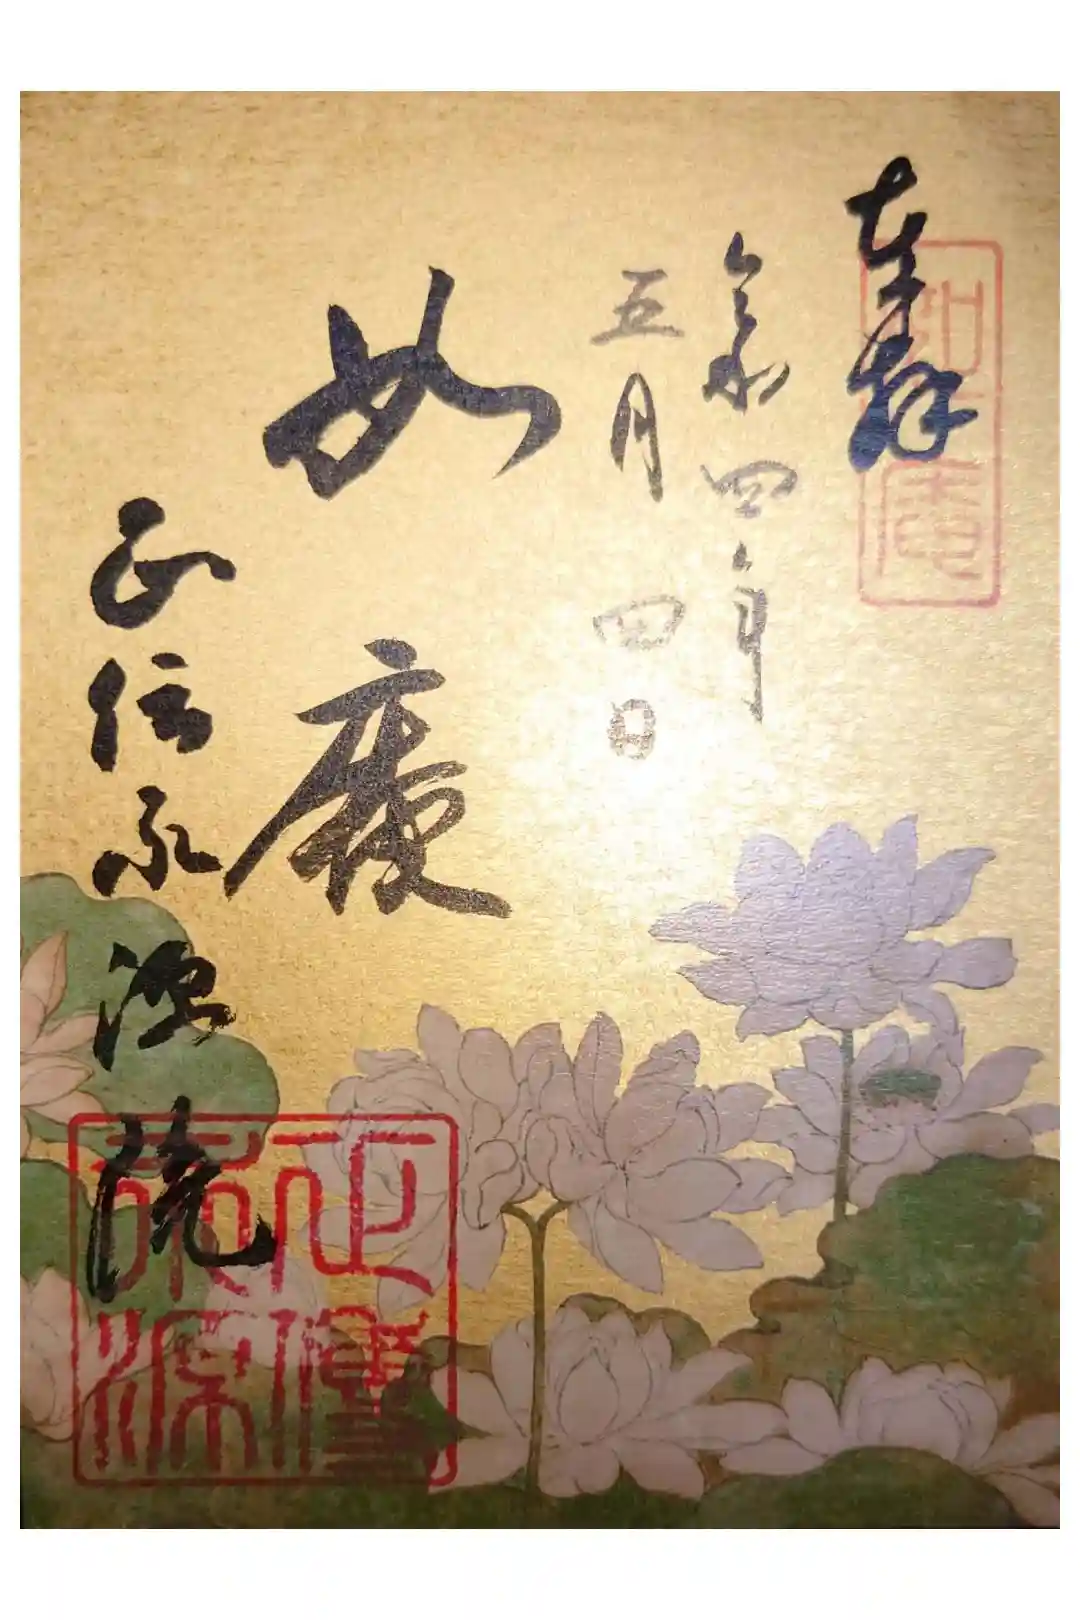 奉拝
如庵
令和四年
五月四日
如庵
正伝永源院
正傳
永源